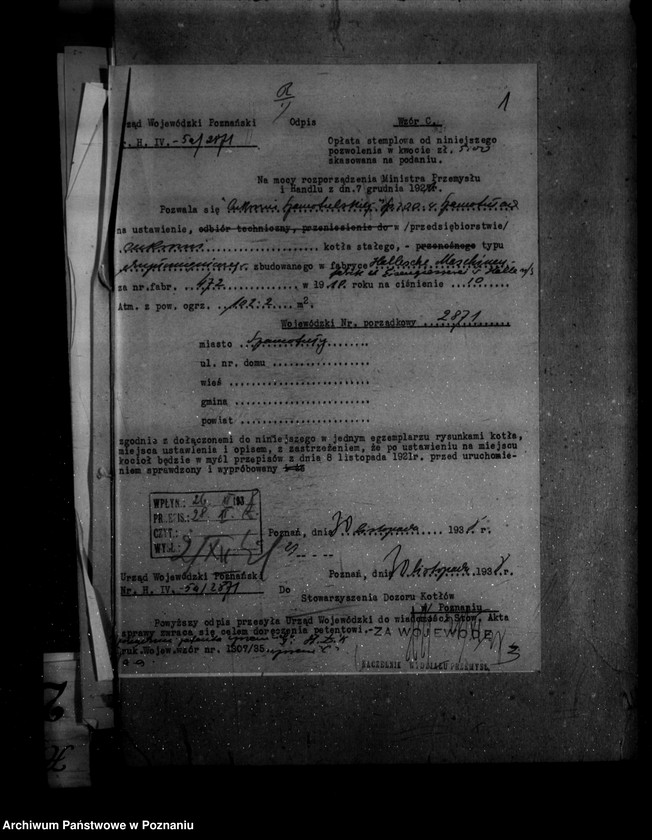 1
Odpis
Wzór C.
Urząd Wojewódzki Poznański
Nr. H. IV.-5a/2871
Opłata stemplowa od niniejszego
pozwolenia w kwocie zł. 5.00
skasowana na podaniu.
Na mocy rozporządzenia Ministra Przemysłu
i Handlu z dn. 7 grudnia 192
Pozwala się "Cukrowni Szamotulskiej" Sp. z o.o. w Szamotułach
na ustawienie, odbiór techniczny, przeniesienie do w /przedsiębiorstwie/
cukrowni kotła stałego, - przenośnego typu
zbudowanego w fabryce Hallesche Maschinen-
za nr. fabr. 672 w 1910 roku na ciśnienie 10
Atm. z pow. ogrz. 102.2 m2.
Wojewódzki Nr. porządkowy 2871
miasto Szamotuły
ul. nr. domu
wieś
gmina
powiat
zgodnie z dołączonemi do niniejszego w jednym egzemplarzu rysunkami kotła,
miejsca ustawienia i opisem, z zastrzeżeniem, że po ustawieniu na miejscu
kocioł będzie w myśl przepisów z dnia 8 listopada 1921r. przed uruchomie-
niem sprawdzony i wypróbowany
WPŁYN.: 26 XI 1938
PRZEPIS.: 28 XI
CZYT.:
WYSŁ.: 2/XII
Poznań, dnia 30 listopada 1938 r.
Urząd Wojewódzki Poznański
Nr. H. IV.-5a/2871
Poznań, dnia 30 listopada 1938r.
Do
Stowarzyszenia Dozoru Kotłów
w/ Poznaniu
Powyższy odpis przesyła Urząd Wojewódzki do wiadomości Stow. Akta
sprawy zwraca się celem doręczenia petentowi.-
ZA WOJEWODĘ
Druk.Wojew.wzór nr. 1307/35
NACZELNIK WYDZIAŁU PRZEMYSŁ.
Archiwum Państwowe w Poznaniu